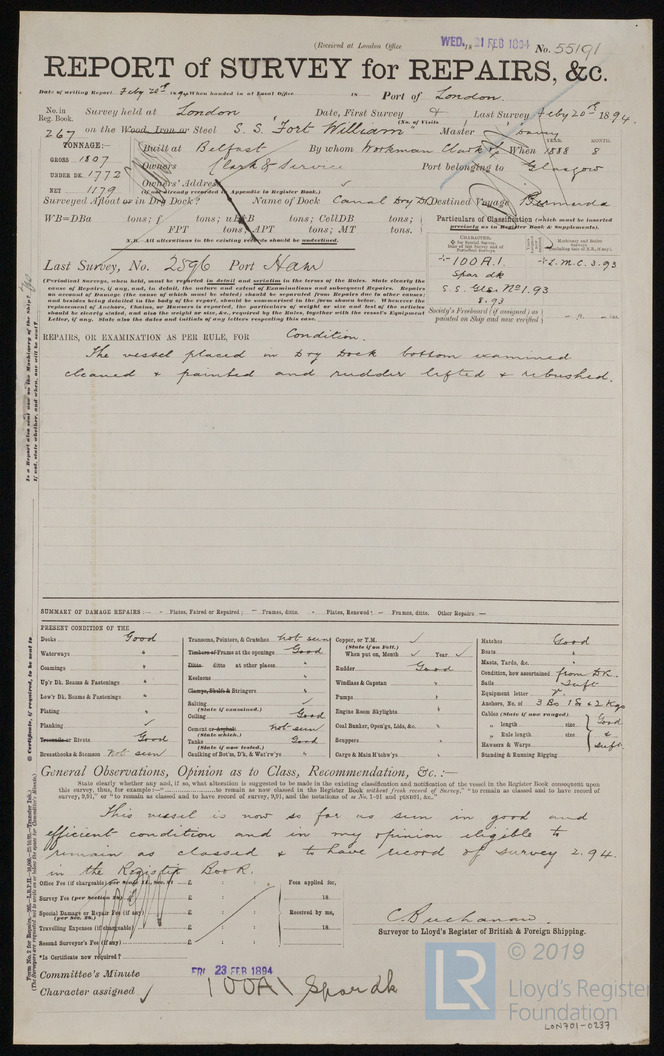 (Received at London Office WED. 18 21 FEB 1894 No. 55191
REPORT of SURVEY for REPAIRS, &c.
Date of writing Report Feby 20th 1894 When handed in at Local Office 18 Port of London.
No. in Reg. Book. Survey held at London Date, First Survey & Last Survey Feby 20th 1894.
(No. of Visits
267 on the Wood, Iron or Steel S. S. "Fort William" Master
TONNAGE:— Built at Belfast By whom Workman Clark & Co When 1888 8
YEAR. MONTH.
GROSS 1807 Owners Clark & Service Port belonging to Glasgow
UNDER DK. 1772 Owners' Address
NET 1179 (if not already recorded in Appendix to Register Book.)
Surveyed Afloat or in Dry Dock? Name of Dock Canal Dry Dk Destined Voyage Bermuda
WB=DBa tons; f tons; uE&B tons; CellDB tons;
FPT tons; APT tons; MT tons.
N.B.—All alterations in the existing records should be underlined.
Particulars of Classification (which must be inserted precisely as in Register Book & Supplements).
Last Survey, No. 2596 Port Ham
100A.1. L.M.C. 3.93
Spar dk
S.S. Gls. No 1.93
8.93
Society's Freeboard (if assigned) as painted on Ship and now verified
(Periodical Surveys, when held, must be reported in detail and seriatim in the terms of the Rules. State clearly the
cause of Repairs, if any, and, in detail, the nature and extent of Examinations and subsequent Repairs. Repairs
on account of Damage (the cause of which must be stated) should be separated from Repairs due to other causes;
and besides being detailed in the body of the report, should be summarised in the form shown below. Whenever the
replacement of Anchors, Chains, or Hawsers is reported, the particulars of weight or size and test of the articles
should be clearly stated, and also the weight or size, &c., required by the Rules, together with the vessel's Equipment
Letter, if any. State also the dates and initials of any letters respecting this case.
REPAIRS, OR EXAMINATION AS PER RULE, FOR Condition.
The vessel placed in Dry Dock bottom examined
cleaned & painted and rudder lifted & rebushed.
SUMMARY OF DAMAGE REPAIRS:— - Plates, Faired or Repaired; - Frames, ditto. - Plates, Renewed: - Frames, ditto. Other Repairs —
PRESENT CONDITION OF THE
Decks Good
Waterways "
Coamings "
Up'r Dk. Beams & Fastenings "
Low'r Dk. Beams & Fastenings "
Plating "
Planking ✓
Treenails or Rivets Good
Breasthooks & Stemson Not seen
Transoms, Pointers, & Crutches Not seen
Timbers or Frames at the openings Good
Ditto ditto at other places "
Keelsons "
Clamps, Shelfs & Stringers "
Salting ✓
(State if examined.)
Ceiling Good
Cement or Asphalt Not seen
(State which.)
Tanks Good
(State if now tested.)
Caulking of Bot'm, D'k, & Wat'rw'ys "
Copper, or Y.M. ✓
(State if on Felt.)
When put on, Month ✓ Year ✓
Rudder Good
Windlass & Capstan "
Pumps "
Engine Room Skylights "
Coal Bunker, Open'gs, Lids, &c. "
Scuppers "
Cargo & Main H'tchw'ys "
Hatches Good
Boats "
Masts, Yards, &c. "
Condition, how ascertained from Dk.
Sails Suft
Equipment letter
Anchors, No. of 3 Bs 1 S & 2 Kgs
Cables (State if now ranged) Good
" length size &
" Rule length size suft.
Hawsers & Warps
Standing & Running Rigging
General Observations, Opinion as to Class, Recommendation, &c.:—
State clearly whether any, and if so, what alteration is suggested to be made in the existing classification and notification of the vessel in the Register Book consequent upon
this survey, thus, for example:—" to remain as now classed in the Register Book without fresh record of Survey," "to remain as classed and to have record of
survey, 9,91," or "to remain as classed and to have record of survey, 9,91, and the notations of ss No. 1-91 and ptND91, &c."
This vessel is now so far as seen in good and
efficient condition and in my opinion eligible to
remain as classed & to have record of survey 2.94.
in the Register Book.
Office Fee (if chargeable) £ : : Fees applied for,
Survey Fee £ : : 18
Special Damage or Repair Fee (if any) £ : : Received by me,
Travelling Expenses (if chargeable) £ : : 18
Second Surveyor's Fee (if any) £ : :
*Is Certificate now required?
C. Buchanan.
Surveyor to Lloyd's Register of British & Foreign Shipping.
Committee's Minute FRI. 23 FEB 1894
Character assigned 100A1 Spar dk
LR
© 2019
Lloyd's Register
Foundation
LON701-0237